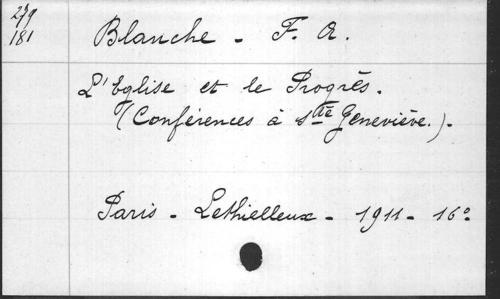 279
181
Blanche - F. A.
L'Eglise et le Progrès.
(Conférences à Ste Geneviève.).
Paris - Lethielleux - 1911 - 16°